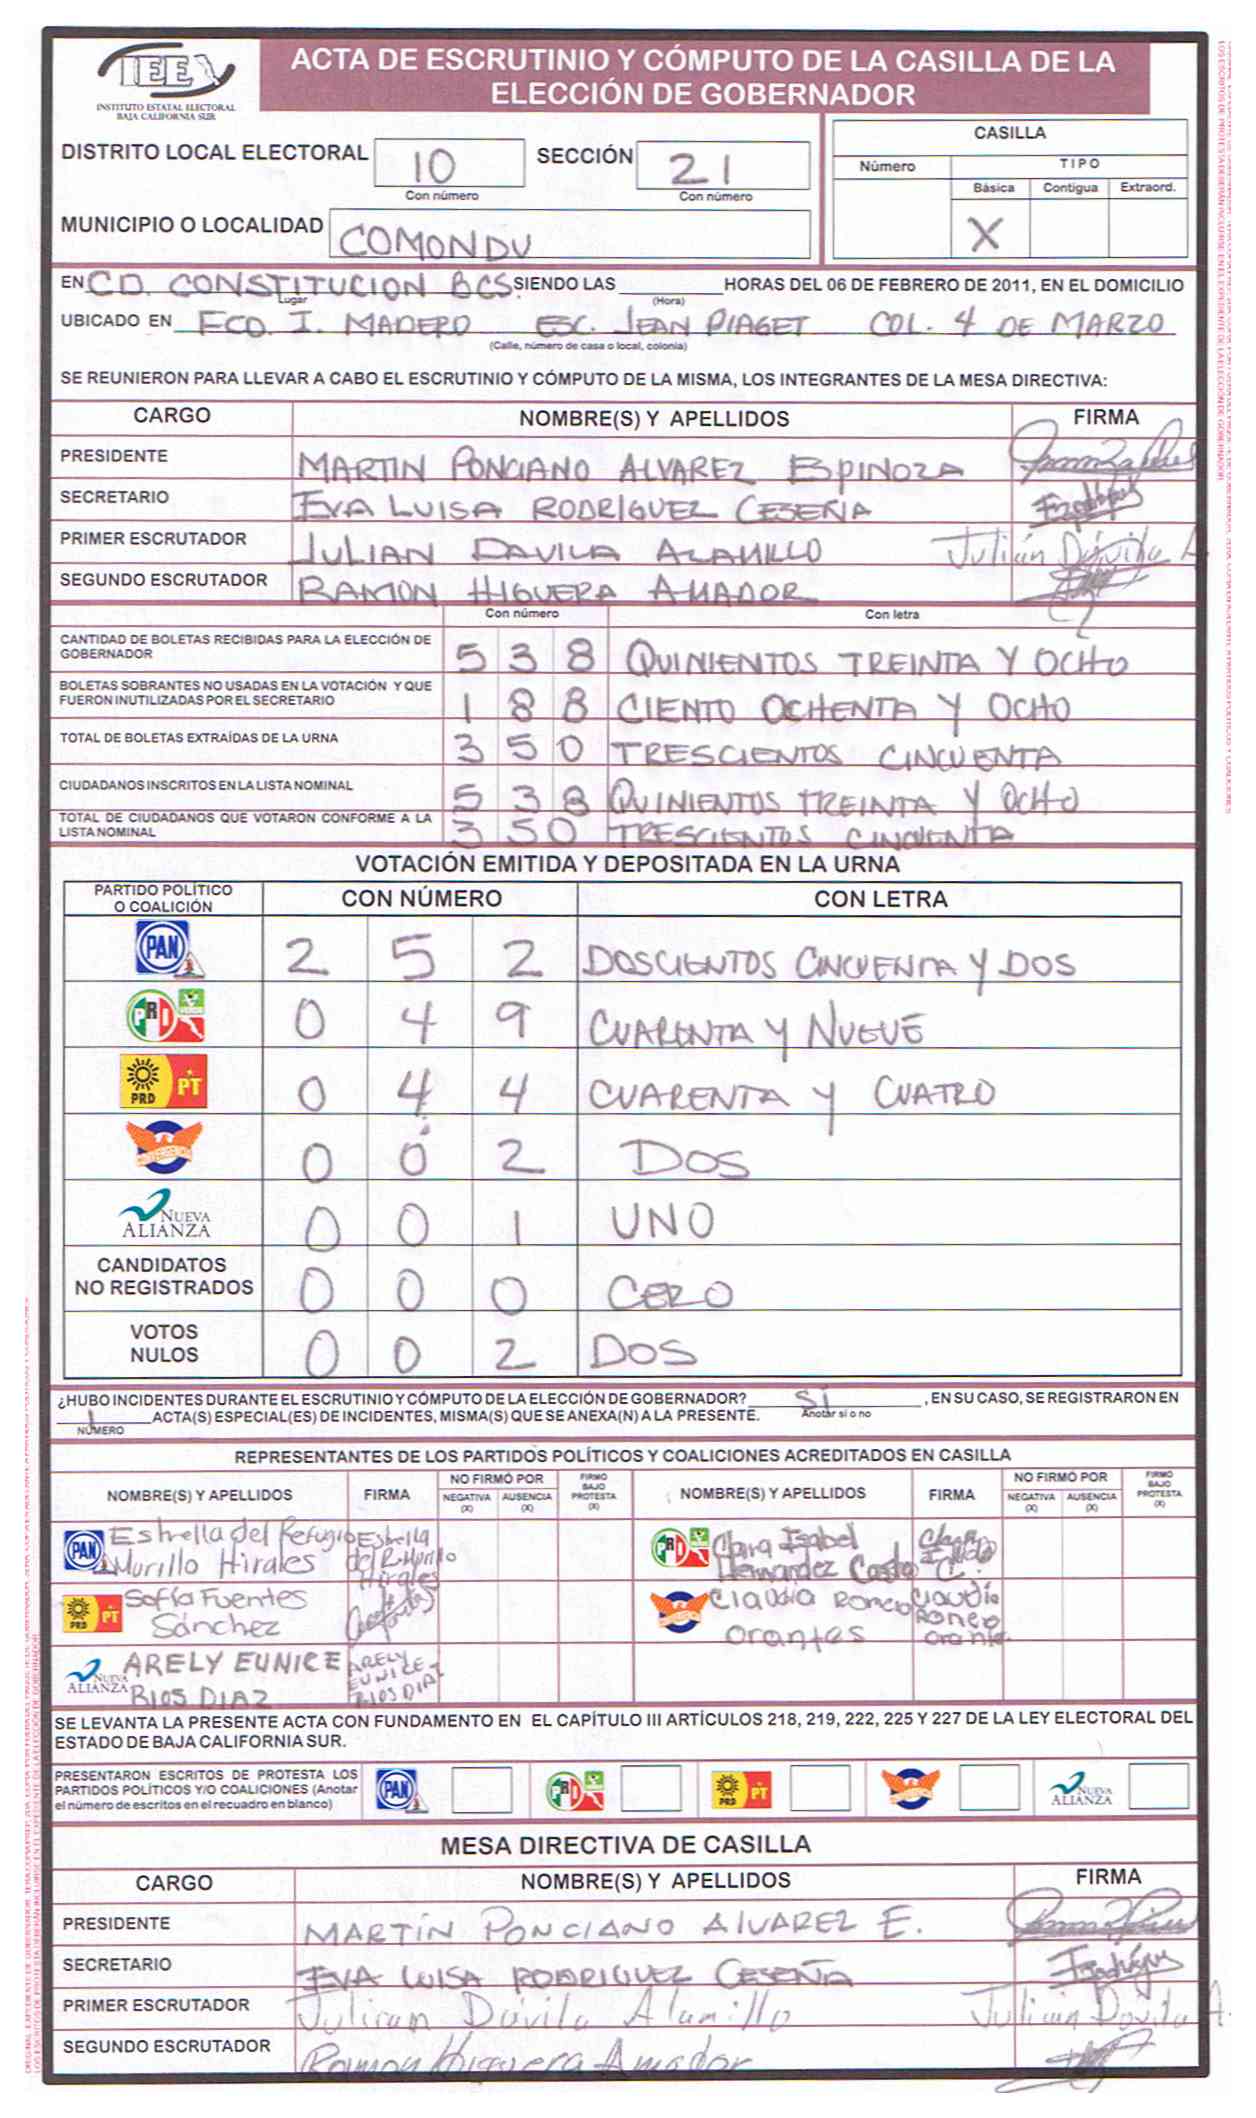 IEE
INSTITUTO ESTATAL ELECTORAL
BAJA CALIFORNIA SUR
ACTA DE ESCRUTINIO Y CÓMPUTO DE LA CASILLA DE LA
ELECCIÓN DE GOBERNADOR
DISTRITO LOCAL ELECTORAL 10 SECCIÓN 21
Con número Con número
CASILLA
Número TIPO
Básica Contigua Extraord.
X
MUNICIPIO O LOCALIDAD COMONDU
EN CD. CONSTITUCION BCS. SIENDO LAS HORAS DEL 06 DE FEBRERO DE 2011, EN EL DOMICILIO
Lugar (Hora)
UBICADO EN FCO. I. MADERO ESC. JEAN PIAGET COL. 4 DE MARZO
(Calle, número de casa o local, colonia)
SE REUNIERON PARA LLEVAR A CABO EL ESCRUTINIO Y CÓMPUTO DE LA MISMA, LOS INTEGRANTES DE LA MESA DIRECTIVA:
CARGO NOMBRE(S) Y APELLIDOS FIRMA
PRESIDENTE MARTIN PONCIANO ALVAREZ ESPINOZA
SECRETARIO EVA LUISA RODRÍGUEZ CESEÑA
PRIMER ESCRUTADOR JULIAN DAVILA ALAMILLO Julián Dávila A.
SEGUNDO ESCRUTADOR RAMON HIGUERA AMADOR
Con número Con letra
CANTIDAD DE BOLETAS RECIBIDAS PARA LA ELECCIÓN DE
GOBERNADOR 538 QUINIENTOS TREINTA Y OCHO
BOLETAS SOBRANTES NO USADAS EN LA VOTACIÓN Y QUE
FUERON INUTILIZADAS POR EL SECRETARIO 188 CIENTO OCHENTA Y OCHO
TOTAL DE BOLETAS EXTRAÍDAS DE LA URNA 350 TRESCIENTOS CINCUENTA
CIUDADANOS INSCRITOS EN LA LISTA NOMINAL 538 QUINIENTOS TREINTA Y OCHO
TOTAL DE CIUDADANOS QUE VOTARON CONFORME A LA
LISTA NOMINAL 350 TRESCIENTOS CINCUENTA
VOTACIÓN EMITIDA Y DEPOSITADA EN LA URNA
PARTIDO POLÍTICO
O COALICIÓN CON NÚMERO CON LETRA
PAN 2 5 2 DOSCIENTOS CINCUENTA Y DOS
PRI 0 4 9 CUARENTA Y NUEVE
PRD PT 0 4 4 CUARENTA Y CUATRO
CONVERGENCIA 0 0 2 DOS
NUEVA ALIANZA 0 0 1 UNO
CANDIDATOS
NO REGISTRADOS 0 0 0 CERO
VOTOS
NULOS 0 0 2 DOS
¿HUBO INCIDENTES DURANTE EL ESCRUTINIO Y CÓMPUTO DE LA ELECCIÓN DE GOBERNADOR? SI , EN SU CASO, SE REGISTRARON EN
Anotar si o no
1 ACTA(S) ESPECIAL(ES) DE INCIDENTES, MISMA(S) QUE SE ANEXA(N) A LA PRESENTE.
NÚMERO
REPRESENTANTES DE LOS PARTIDOS POLÍTICOS Y COALICIONES ACREDITADOS EN CASILLA
NOMBRE(S) Y APELLIDOS FIRMA NO FIRMÓ POR NEGATIVA (X) AUSENCIA (X) FIRMO BAJO PROTESTA (X) NOMBRE(S) Y APELLIDOS FIRMA NO FIRMÓ POR NEGATIVA (X) AUSENCIA (X) FIRMO BAJO PROTESTA (X)
PAN Estrella del Refugio Murillo Hirales Estrella del R. Murillo Hirales
PRI Clara Isabel Hernandez Costo
PRD PT Sofía Fuentes Sánchez
Claudia Romero Orantes Claudia Romero Orante
NUEVA ALIANZA ARELY EUNICE RIOS DIAZ ARELY EUNICE RIOS DIAZ
SE LEVANTA LA PRESENTE ACTA CON FUNDAMENTO EN EL CAPÍTULO III ARTÍCULOS 218, 219, 222, 225 Y 227 DE LA LEY ELECTORAL DEL
ESTADO DE BAJA CALIFORNIA SUR.
PRESENTARON ESCRITOS DE PROTESTA LOS
PARTIDOS POLÍTICOS Y/O COALICIONES (Anotar
el número de escritos en el recuadro en blanco)
PAN PRI PRD PT NUEVA ALIANZA
MESA DIRECTIVA DE CASILLA
CARGO NOMBRE(S) Y APELLIDOS FIRMA
PRESIDENTE MARTÍN PONCIANO ALVAREZ E.
SECRETARIO EVA LUISA RODRIGUEZ CESEÑA
PRIMER ESCRUTADOR Julian Dávila Alamillo Julian Davila A.
SEGUNDO ESCRUTADOR Ramon Higuera Amador